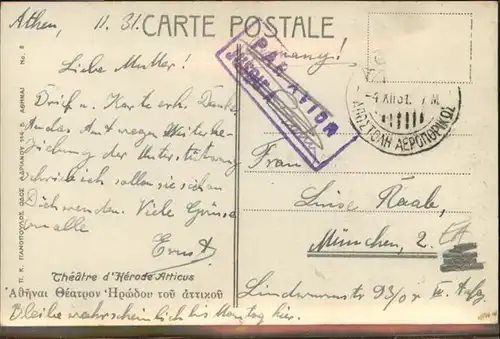 Athen, 11.31.
CARTE POSTALE
Liebe Mutter!
Brief u. Karte erh. Danke
Amt wegen Weiterbe-
ziehung der Unterstützung
schreib ich sollen sie sich an
Dich wenden. Viele Grüsse
an alle
Ernst
Théâtre d'Hérode Atticus
Ἀθῆναι Θέατρον Ἡρώδου τοῦ ἀττικοῦ
Bleibe wahrscheinlich bis hier.
No. 8
Π. Κ. ΠΑΝΟΠΟΥΛΟΣ ΟΔΟΣ ΑΔΡΙΑΝΟΥ 114 ΑΘΗΝΑΙ
PAR AVION
-4 XII 31. 7 M.
ΑΠΟΣΤΟΛΗ ΑΕΡΟΠΟΡΙΚΩΣ
Frau
Luise Raale,
München, 2.
Lindwurmstr 93/0r III. Aufg